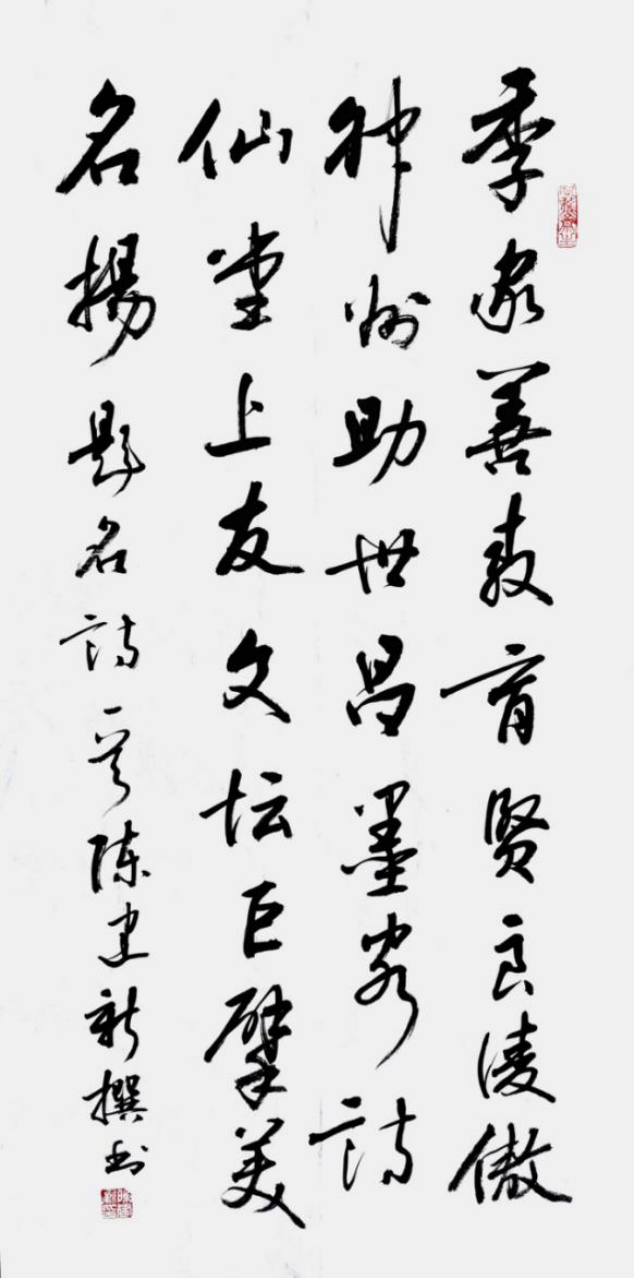 季家善教育贤良凌傲
神州助世昌墨客诗
仙堂上友文坛巨擘美
名揚题名诗一首陈建新撰书